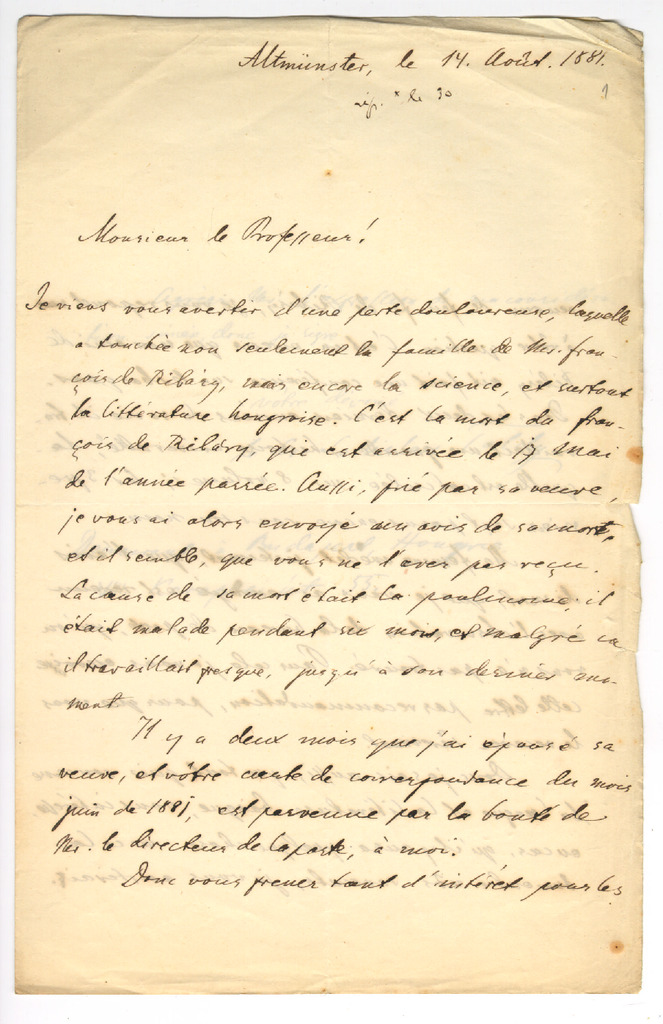 Altmünster, le 14. Août. 1881.
rép. x le 30
1
Monsieur le Professeur!
Je viens vous avertir d'une perte douloureuse, laquelle
a touchée non seulement la famille de Mr. fran-
çois de Ribáry, mais encore la science, et surtout
la littérature hongroise. C'est la mort du fran-
çois de Ribáry, qui est arrivée le 17 Mai
de l'année passée. Aussi, prié par sa veuve,
je vous ai alors envoyé un avis de sa mort,
et il semble, que vous ne l'avez pas reçu.
La cause de sa mort était la poulmonie; il
était malade pendant six mois, et malgré ca
il travaillait presque, jusqu'à son dernier mo-
ment.
Il y a deux mois que j'ai épousé sa
veuve, et vôtre carte de correspondance du mois
juin de 1881, est parvenue par la bonté de
Mr. le directeur de la poste, à moi.
Donc vous prenez tant d'intérêt pour les